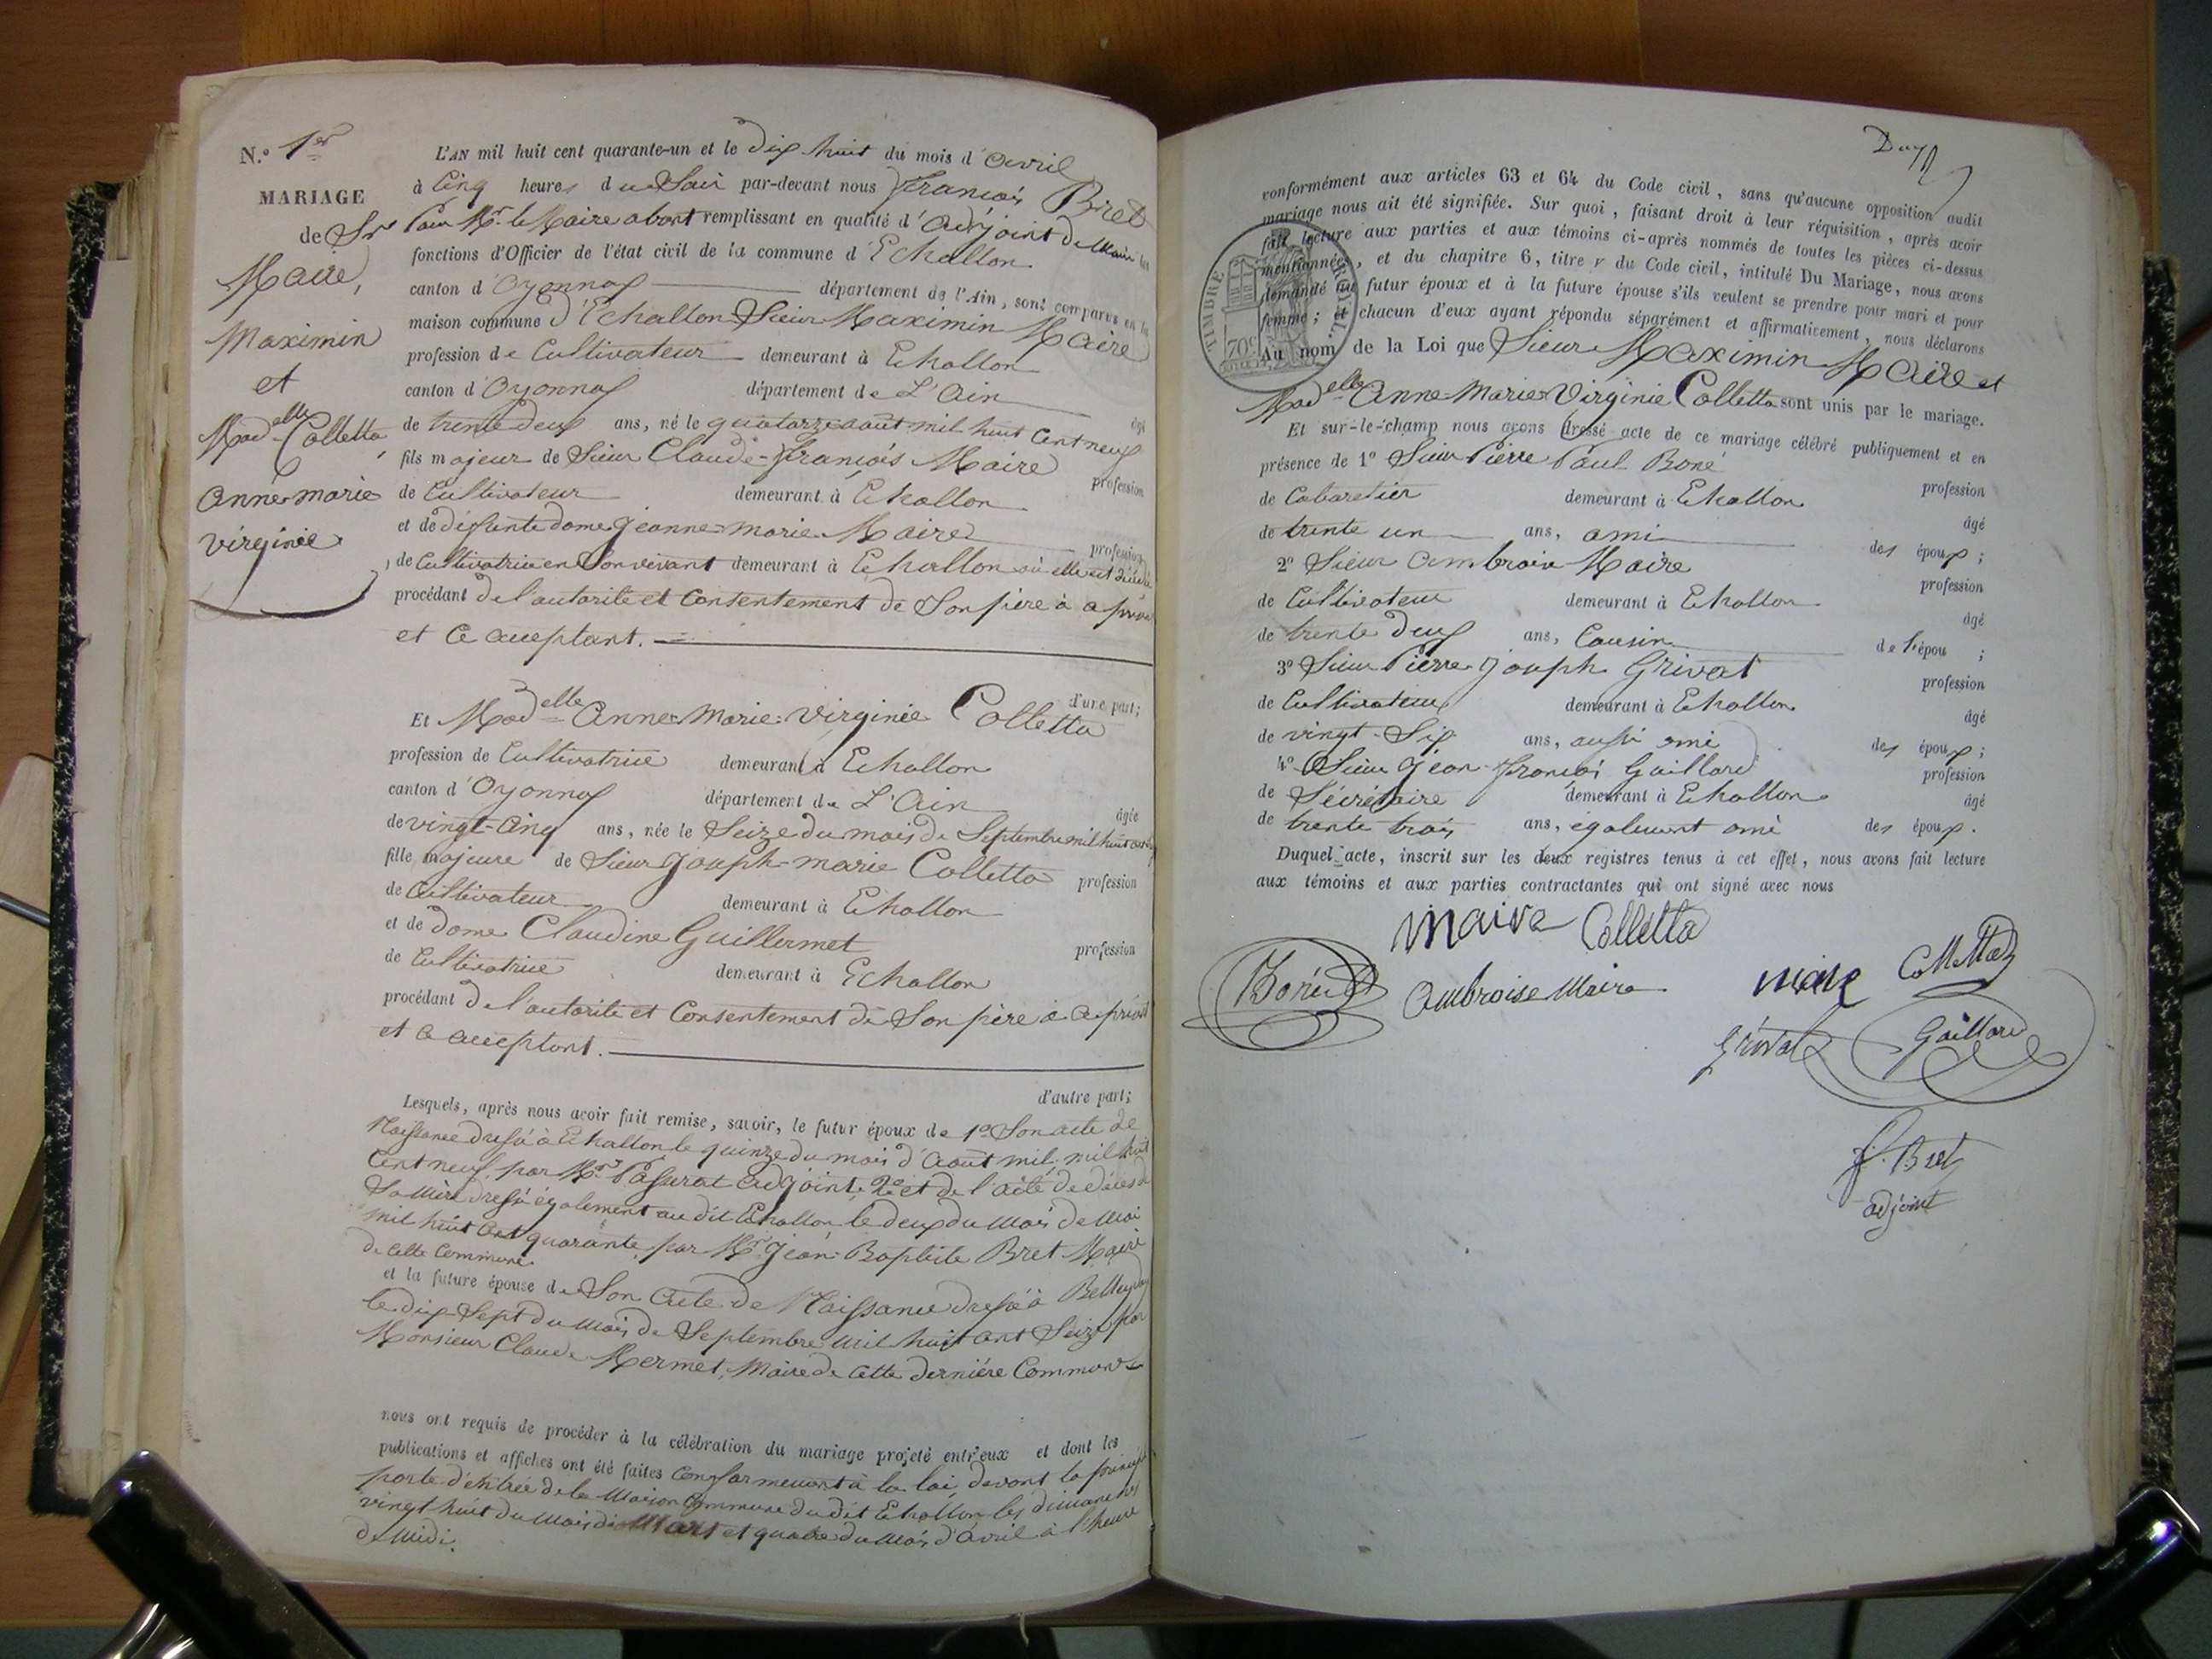 N.o 1er
MARIAGE
de Sr
Maire,
Maximin
et
Madelle Colletta,
anne marie
virginie
L'AN mil huit cent quarante-un et le dix huit du mois d'avril
à Cinq heures du Soir par-devant nous françois Bret
Pour Mr. le Maire absent remplissant en qualité d'adjoint de Maire les
fonctions d'Officier de l'état civil de la commune d'Echallon
canton d'Oyonnax département de l'Ain, sont comparus en la
maison commune d'Echallon Sieur Maximin Maire
profession de Cultivateur demeurant à Echallon
canton d'Oyonnax département de L'Ain
âgé
de trente deux ans, né le quatorze aout mil huit Cent neuf
fils majeur de Sieur Claude-françois Maire
profession
de Cultivateur demeurant à Echallon
et de défunte dame jeanne marie Maire
profession
de Cultivatrice en Son vivant demeurant à Echallon où elle est décédée
procédant de l'autorité et Consentement de Son père à ce présent
et ce acceptant.
d'une part;
Et Madelle anne marie virginie Colletta
profession de Cultivatrice demeurant à Echallon
canton d'Oyonnax département de L'Ain
âgée
de vingt-Cinq ans, née le Seize du mois de Septembre mil huit cent
fille majeure de Sieur joseph-marie Colletta
profession
de Cultivateur demeurant à Echallon
et de dame Claudine Guillermet
profession
de Cultivatrice demeurant à Echallon
procédant de l'autorité et Consentement de Son père à ce présent
et ce acceptant.
d'autre part;
Lesquels, après nous avoir fait remise, savoir, le futur époux de 1o Son acte de
Naissance dressé à Echallon le quinze du mois d'Aout mil mil huit
Cent neuf, par Mr Passurat adjoint, 2o et de l'acte de décès de
Sa Mère dressé également au dit Echallon le deux du mois de Mai
mil huit Cent quarante, par Mr jean-Baptiste Bret Maire
de cette Commune
et la future épouse de Son Acte de Naissance dressé à Belleydoux
le dix-Sept du mois de Septembre mil huit Cent Seize par
Monsieur Claude Mermet, Maire de cette dernière Commune
nous ont requis de procéder à la célébration du mariage projeté entr'eux et dont les
publications et affiches ont été faites Conformement à la loi, devant la principale
porte d'entrée de la Maison Commune du dit Echallon les dimanches
vingt huit du Mois de Mars et quatre du Mois d'avril à l'heure
de Midi.
conformément aux articles 63 et 64 du Code civil, sans qu'aucune opposition audit
mariage nous ait été signifiée. Sur quoi, faisant droit à leur réquisition, après avoir
fait lecture aux parties et aux témoins ci-après nommés de toutes les pièces ci-dessus
mentionnées, et du chapitre 6, titre v du Code civil, intitulé Du Mariage, nous avons
demandé au futur époux et à la future épouse s'ils veulent se prendre pour mari et pour
femme; et chacun d'eux ayant répondu séparément et affirmativement, nous déclarons
TIMBRE ROYAL
70c
Au nom de la Loi que Sieur Maximin Maire et
Madelle Anne-Marie Virginie Colletta sont unis par le mariage.
Et sur-le-champ nous avons dressé acte de ce mariage célébré publiquement et en
présence de 1o Sieur Pierre Paul Boné
profession
de Cabaretier demeurant à Echallon
âgé
de trente un ans, ami des époux;
2o Sieur Ambroise Maire
profession
de Cultivateur demeurant à Echallon
âgé
de trente deux ans, Cousin de l'épou ;
3o Sieur Pierre joseph Grivat
profession
de Cultivateur demeurant à Echallon
âgé
de vingt-Six ans, aussi ami des époux;
4o Sieur jean-françois Gaillard
profession
de Sécrétaire demeurant à Echallon
âgé
de trente trois ans, également ami des époux.
Duquel acte, inscrit sur les deux registres tenus à cet effet, nous avons fait lecture
aux témoins et aux parties contractantes qui ont signé avec nous
Maire Colletta
Ambroise Maire maire Colletta
Grivat Gaillard
f. Bret
adjoint